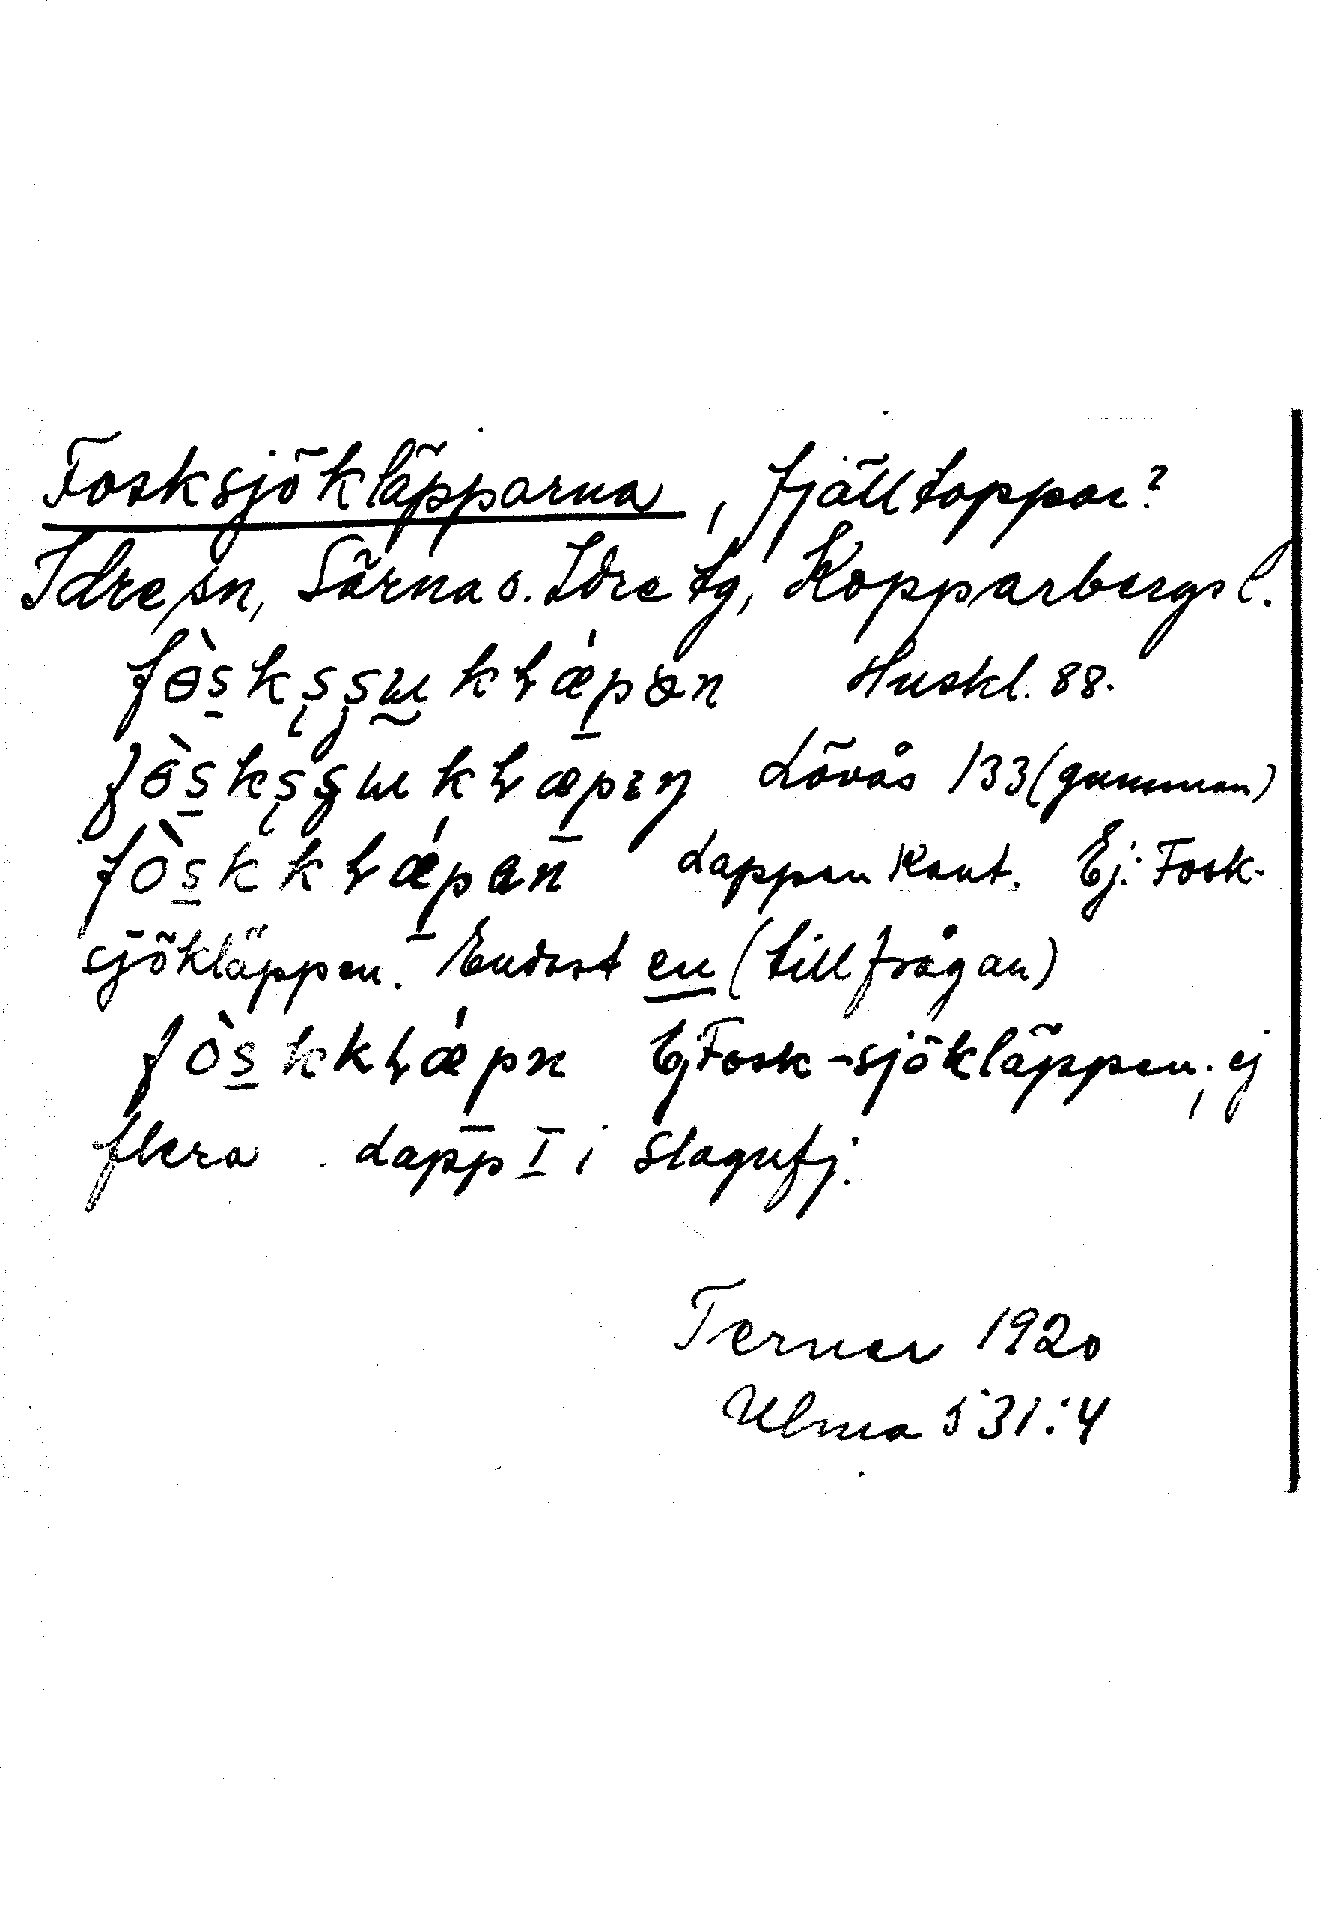 Fosksjökläpparna, fjälltoppar?
Idre sn, Särna o. Idre tg, Kopparbergs l.
fɵ̀s̲kşşɯkɫǽp̲ən Huskl. 88.
fɵ̀s̲kşşɯkɫæp̲ɪŋ Lövås 133 (gumman)
fòs̲kkɫǽp̲an Lappen Knut. Ej: Fosk-
sjökläppen. Endast en (tillfrågan)
fòs̲kkɫǽp̲n Ej Fosk-sjökläppen; ej
flera. Lapp I i Slagufj.
Terner 1920
Ulma 531:4